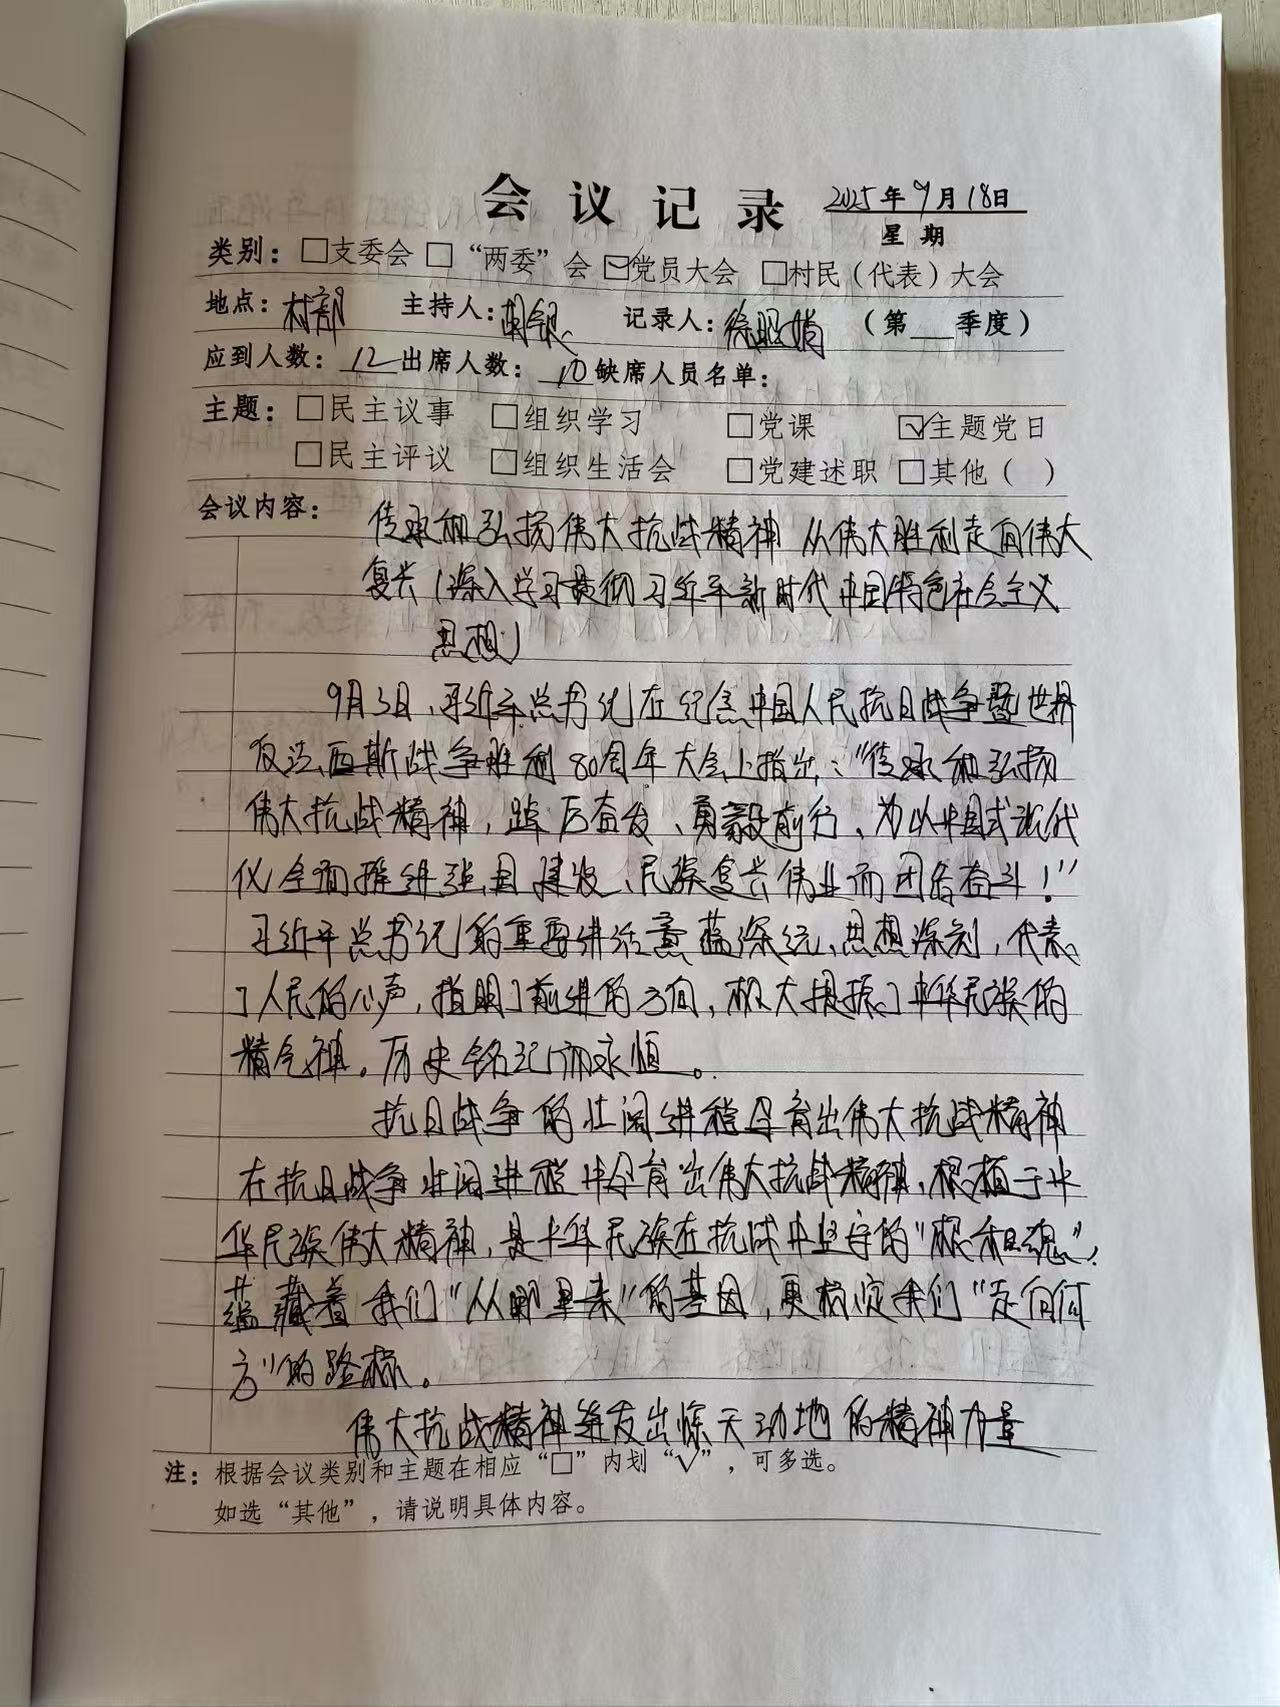 会议记录 2025年9月18日
星期
类别：□支委会 □“两委”会 ☑党员大会 □村民（代表）大会
地点：村部 主持人：胡银 记录人：徐昭娟 （第 季度）
应到人数：12 出席人数：10 缺席人员名单：
主题：□民主议事 □组织学习 □党课 ☑主题党日
□民主评议 □组织生活会 □党建述职 □其他（ ）
会议内容：传承和弘扬伟大抗战精神 从伟大胜利走向伟大
复兴（深入学习贯彻习近平新时代中国特色社会主义
思想）
9月3日，习近平总书记在纪念中国人民抗日战争暨世界
反法西斯战争胜利80周年大会上指出：“传承和弘扬
伟大抗战精神，踔厉奋发、勇毅前行，为以中国式现代
化全面推进强国建设、民族复兴伟业而团结奋斗！”
习近平总书记的重要讲话意蕴深远、思想深刻，代表
了人民的心声，指明了前进的方向，极大提振了中华民族的
精气神。历史铭记而永恒。
抗日战争的壮阔进程孕育出伟大抗战精神
在抗日战争壮阔进程中孕育出伟大抗战精神，根植于中
华民族伟大精神，是中华民族在抗战中坚守的“根和魂”，
蕴藏着我们“从哪里来”的基因，更标定我们“走向何
方”的路标。
伟大抗战精神迸发出惊天动地的精神力量
注：根据会议类别和主题在相应“□”内划“√”，可多选。
如选“其他”，请说明具体内容。